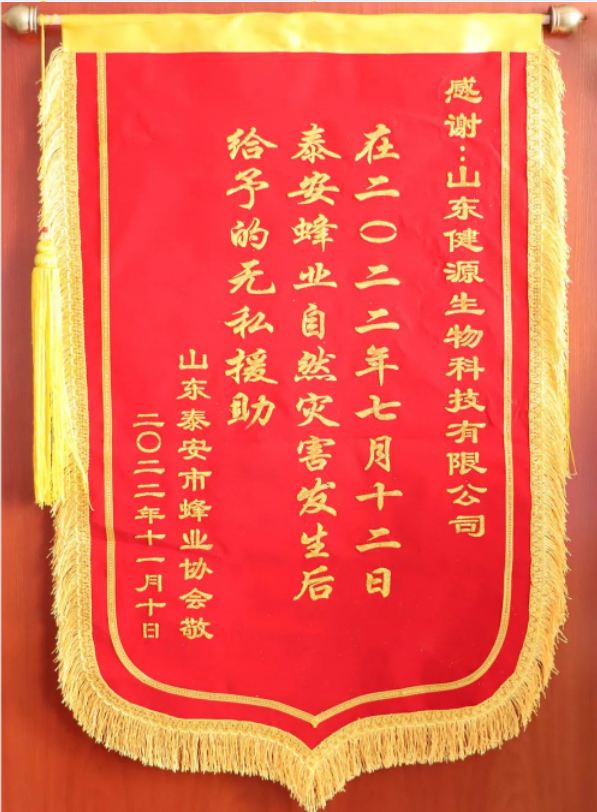 感谢：山东健源生物科技有限公司
在二〇二二年七月十二日
泰安蜂业自然灾害发生后
给予的无私援助
山东泰安市蜂业协会敬
二〇二二年十一月十日